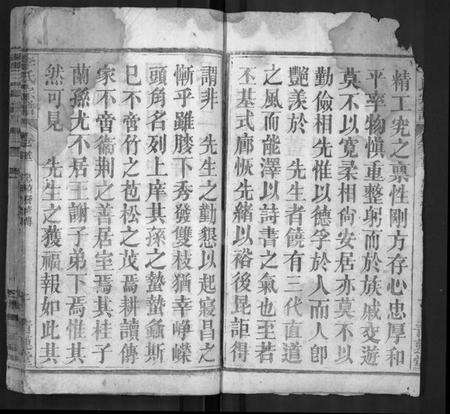 精工究之稟性剛方存心忠厚和
平率物慎重整躬而於族戚交遊
莫不以寬柔相尙安居亦莫不以
勤儉相先惟以德孚於人而人卽
豔羨於 先生者饒有三代直道
之風而能澤以詩書之氣也至若
丕基式廓恢先緖以裕後昆詎得
謂非 先生之勤懇以起寢昌之
漸乎雖膝下秀發雙枝猶幸崢嶸
頭角名列上庠其孫之蟄蟄螽斯
已不啻竹之苞松之茂焉耕讀傳
家不啻德荆之善居室焉其桂子
蘭孫尤不居王謝子弟下焉惟其
然可見 先生之獲福報如此其